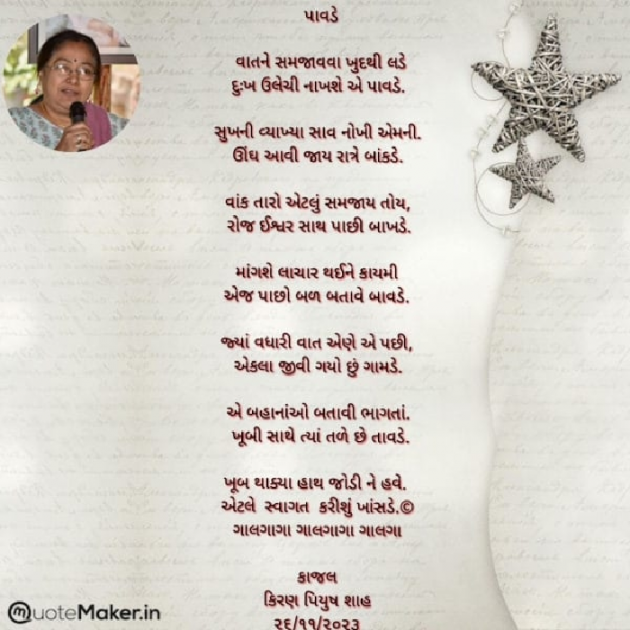 પાવડે
વાતને સમજાવવા ખુદથી લડે
દુઃખ ઉલેચી નાખશે એ પાવડે.
સુખની વ્યાખ્યા સાવ નોખી એમની.
ઊંઘ આવી જાય રાત્રે બાંકડે.
વાંક તારો એટલું સમજાય તોય,
રોજ ઈશ્વર સાથ પાછી બાખડે.
માંગશે લાચાર થઈને કાયમી
એજ પાછો બળ બતાવે બાવડે.
જ્યાં વધારી વાત એણે એ પછી,
એકલા જીવી ગયો છું ગામડે.
એ બહાનાંઓ બતાવી ભાગતાં.
ખૂબી સાથે ત્યાં તળે છે તાવડે.
ખૂબ થાક્યા હાથ જોડી ને હવે.
એટલે સ્વાગત કરીશું ખાંસડે.©
ગાલગાગા ગાલગાગા ગાલગા
કાજલ
કિરણ પિયુષ શાહ
૨૬/૧૧/૨૦૨૩
QuoteMaker.in